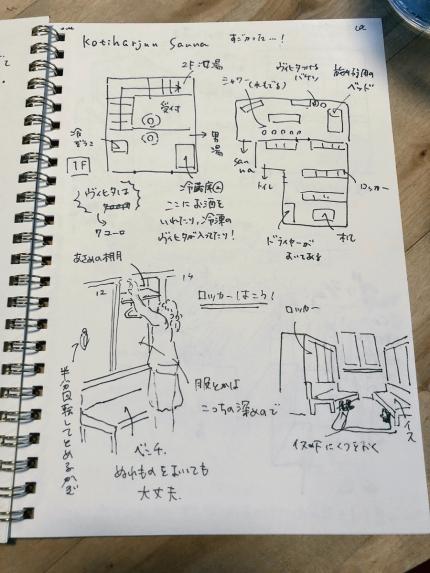 Kotiharjun Sauna
すごかった…!
2F 女湯
受付
男湯
1F
ヴィヒタは
7ユーロ
冷蔵庫
ここにお酒を
いれたり、冷凍の
ヴィヒタが入ってたり!
シャワー
ヴィヒタつける
ベッド
sauna
トイレ
ロッカー
机
ドライヤーが
おいてある
12
14
ロッカーはこう!
服とかは
こっちの深めので
ベンチ.
ぬれものをおいても
大丈夫.
半分回転してとめるかぎ
ロッカー
イス
イスの下にくつをおく